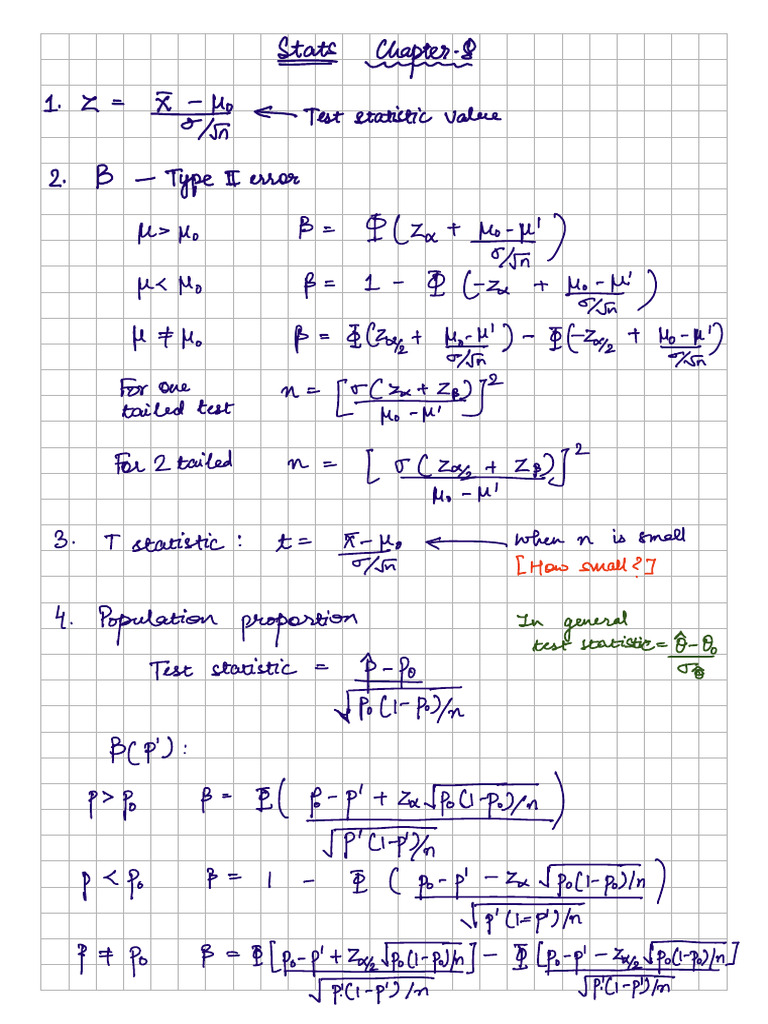 Stats Chapter-8
1. Z = (x̄ - μ₀)/(σ/√n) ← Test statistic value
2. β — Type II error
μ > μ₀ β = Φ(Zα + (μ₀ - μ')/(σ/√n))
μ < μ₀ β = 1 - Φ(-Zα + (μ₀ - μ')/(σ/√n))
μ ≠ μ₀ β = Φ(Zα/2 + (μ₀ - μ')/(σ/√n)) - Φ(-Zα/2 + (μ₀ - μ')/(σ/√n))
For one
tailed test n = [σ(Zα + Zβ)/(μ₀ - μ')]²
For 2 tailed n = [σ(Zα/2 + Zβ)/(μ₀ - μ')]²
3. T statistic : t = (x̄ - μ₀)/(σ/√n) ← when n is small
[How small?]
4. Population proportion
In general
test statistic = (θ̂ - θ₀)/σθ̂
Test statistic = (p̂ - p₀)/√(p₀(1 - p₀)/n)
β(p') :
p > p₀ β = Φ((p₀ - p' + Zα√(p₀(1 - p₀)/n))/√(p'(1 - p')/n))
p < p₀ β = 1 - Φ((p₀ - p' - Zα√(p₀(1 - p₀)/n))/√(p'(1 - p')/n))
p ≠ p₀ β = Φ[(p₀ - p' + Zα/2√(p₀(1 - p₀)/n))/√(p'(1 - p')/n)] - Φ[(p₀ - p' - Zα/2√(p₀(1 - p₀)/n))/√(p'(1 - p')/n)]